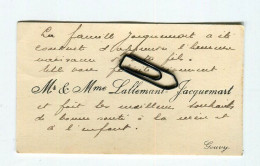 La famille Jacquemart a été
d'apprendre l'heureuse
naissance fils.
Elle vous
Mr & Mme Lallemant-Jacquemart
et fait les meilleurs souhaits
de bonne santé à la mère et
à l'enfant.
Gouvy.